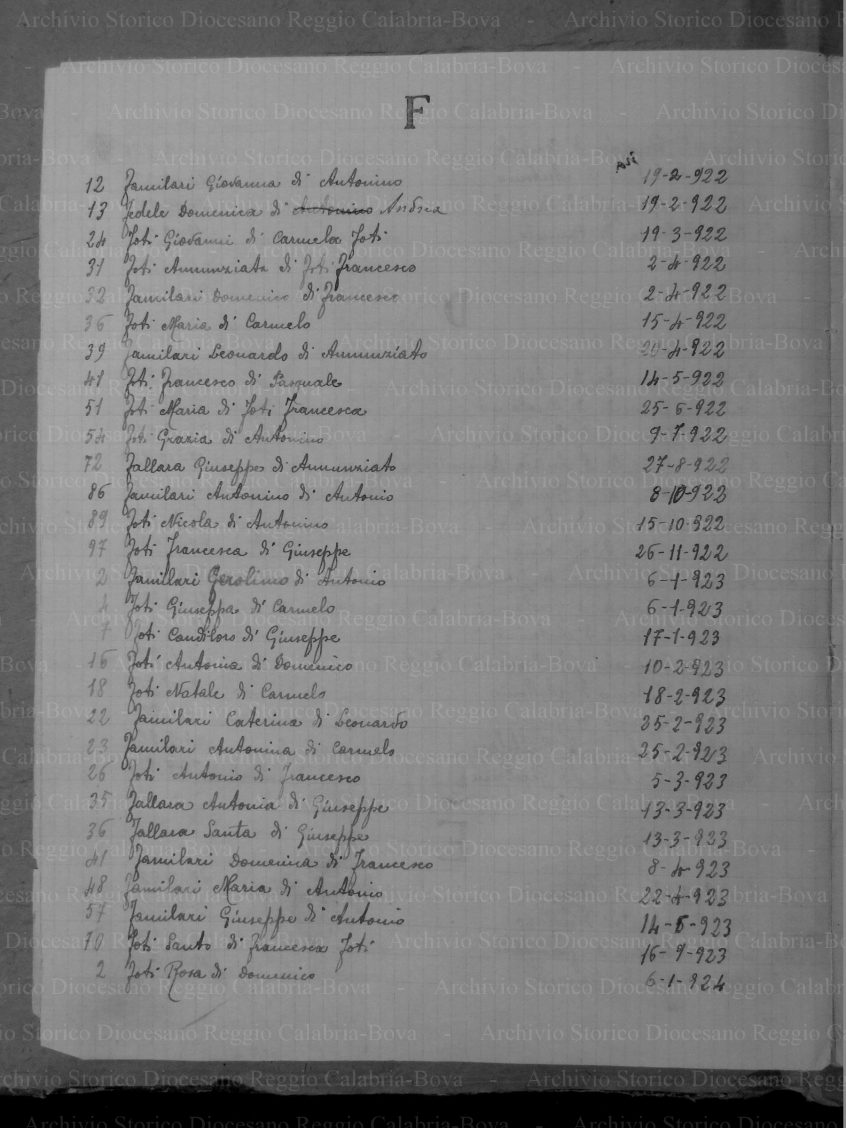 F
12 Familari Giovanna di Antonino 19-2-922
13 Fedele Domenica di Antonino Andrea 19-2-922
24 Foti Giovanni di Carmela Foti 19-3-922
31 Foti Annunziata di Foti Francesco 2-4-922
32 Familari Domenico di Francesco 2-4-922
36 Foti Maria di Carmelo 15-4-922
39 Familari Leonardo di Annunziato 20-4-922
41 Foti Francesco di Pasquale 14-5-922
51 Foti Maria di Foti Francesca 25-6-922
54 Foti Grazia di Antonino 9-7-922
72 Fallara Giuseppe di Annunziato 27-8-922
86 Familari Antonino di Antonio 8-10-922
89 Foti Nicola di Antonino 15-10-922
97 Foti Francesca di Giuseppe 26-11-922
2 Familari Gerolimo di Antonio 6-1-923
4 Foti Giuseppa di Carmelo 6-1-923
7 Foti Candiloro di Giuseppe 17-1-923
16 Foti Antonina di Domenico 10-2-923
18 Foti Natale di Carmelo 18-2-923
22 Familari Caterina di Leonardo 25-2-923
23 Familari Antonina di Carmelo 25-2-923
26 Foti Antonio di Francesco 5-3-923
35 Fallara Antonia di Giuseppe 13-3-923
36 Fallara Santa di Giuseppe 13-3-923
41 Familari Domenica di Francesco 8-4-923
48 Familari Maria di Antonio 22-4-923
57 Familari Giuseppe di Antonio 14-5-923
70 Foti Santo di Francesca Foti 16-9-923
2 Foti Rosa di Domenico 6-1-924
Archivio Storico Diocesano Reggio Calabria-Bova